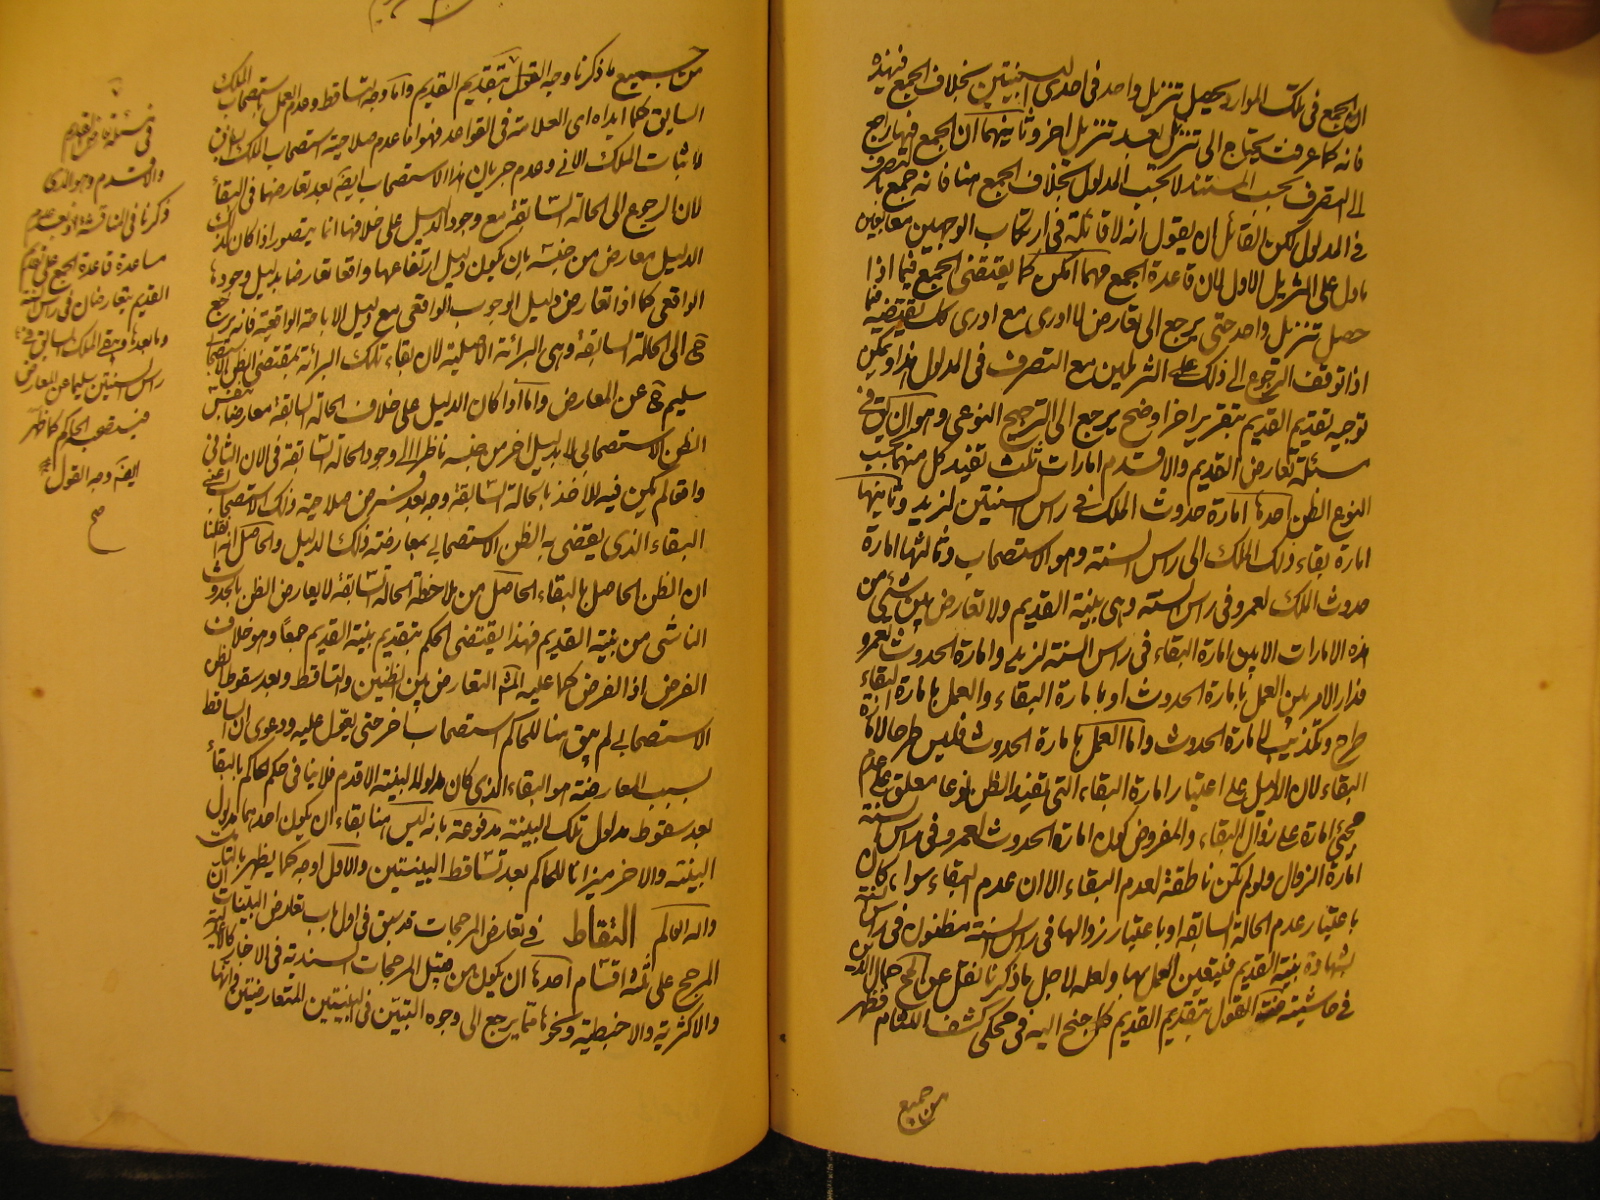 ان الجمع في تلك الموارد يحصل بتنزيل واحد في احدى البينتين بخلاف الجمع فيهذه
فانه كما عرفت يحتاج الى تنزيل بعد تنزيل اخر وثانيهما ان الجمع فيها راجع
الى التصرف بحسب المستند لا بحسب المدلول بخلاف الجمع هنا فانه جمع بالتصرف
في المدلول لكن لقائل ان يقول انه لا قائلة في ارتكاب الوجهين معا
بادل على التنزيل الاول لان قاعدة الجمع مهما امكن كما يقتضى الجمع فيما اذا
حصل تنزيل واحد حتى يرجع الى تعارض لا ادرى مع ادرى كك يقتضيه فيما
اذا توقف الرجوع الى ذلك على التنزيلين مع التصرف في المدلول هذا ويمكن
توجيه تقديم القديم بتقرير اخر اوضح يرجع الى الترجيح النوعي وهو ان في
مسئلة تعارض القديم والاقدم امارات ثلث تفيد كل منها بحسب
النوع الظن احدها امارة حدوث الملك في راس السنتين لزيد وثانيها
امارة بقاء ذلك الملك الى راس السنة وهو الاستصحاب وثالثها امارة
حدوث الملك لعمرو في راس السنة وهى بينة القديم ولا تعارض بين شئ من
هذه الامارات الا بين امارة البقاء في راس السنة لزيد وامارة الحدوث لعمرو
فدار الامر بين العمل بامارة الحدوث او بامارة البقاء والعمل بامارة البقاء
طرح وتكذيب لامارة الحدوث واما العمل بامارة الحدوث فليس طرحا لامارة
البقاء لان الدليل على اعتبار امارة البقاء التى تفيد الظن نوعا معلق على عدم
مجئ امارة على زوال البقاء والمفروض كون امارة الحدوث لعمرو في راس السنة
امارة الزوال ولو لم تكن ناطقة لعدم البقاء الا ان عدم البقاء سواء كان
باعتبار عدم الحالة السابقة او باعتبار زوالها في راس السنة مظنون في راس السنة
بشهادة بينة القديم فيتعين العمل بها ولعله لاجل ما ذكرنا نقل عن المحقق جمال الدين
في حاشيته القول بتقديم القديم كما جنح اليه في محكى كشف اللثام فظهر
من جميع
من جميع ما ذكرنا وجه القول بتقديم القديم واما وجه التساقط وعدم العمل باستصحاب الملك
السابق كما ابداه اى العلامة في القواعد فهو اما عدم صلاحية استصحاب الملك السابق
لاثبات الملك الانى وعدم جريان هذا الاستصحاب ايضا بعد تعارضها في البقاء
لان الرجوع الى الحالة السابقة مع وجود الدليل على خلافها انما يتصور اذا كان لذلك
الدليل معارض من جنسه بان يكون دليل ارتفاعها واقعا تعارضا بدليل وجودها
الواقعى كما اذا تعارض دليل الوجوب الواقعى مع دليل الاباحة الواقعية فانه يرجع
ح الى الحالة السابقة وهى البرائة الاصلية لان بقاء تلك البرائة بمقتضى الظن الاستصحابى
سليم ح عن المعارض واما اذا كان الدليل على خلاف الحالة السابقة معارضا بنفس
الظن الاستصحابى لا بدليل اخر من جنسه ناظرا الى وجود الحالة السابقة في الان الثانى
واقعا لم يكن فيه للاخذ بالحالة السابقة وجه بعد فرض صلاحية ذلك الاستصحاب اعنى
البقاء الذى يقتضى به الظن الاستصحابى لمعارضة ذلك الدليل والحاصل انه ان قلنا
ان الظن الحاصل بالبقاء الحاصل من ملاحظة الحالة السابقة لا يعارض الظن بالحدوث
الناشى من بينة القديم فهذا يقتضى الحكم بتقديم بينة القديم جمعا وهو خلاف
الفرض اذ الفرض كما عليه التعارض بين الظنين والتساقط وبعد سقوط الظن
الاستصحابى لم يبق هنا للحاكم استصحاب اخر حتى يعول عليه ودعوى ان الساقط
بسبب المعارضة هو البقاء الذى كان مدلولا لبينة الاقدم فلا ينافى حكم الحاكم بالبقاء
بعد سقوط مدلول تلك البينة مدفوعة بانه ليس هنا بقاء ان يكون احدهما مدلول
البينة والاخر ميزانا للحاكم بعد تساقط البينتين والاول اوجه كما يظهر بالتامل
والله العالم التقاط في تعارض المرجحات قد سبق في اول باب تعارض البينات ان
المرجح على ثلثة اقسام احدها ان يكون من قبيل المرجحات السندية في الاخبار كالاعدلية
والاكثرية والاضبطية ونحوها مما يرجع الى وجوه التبين في البينتين المتعارضتين وانها
في مسئلة تعارض القديم
والاقدم وهو الذى
ذكرنا في المناقشة بعد عدم
مساعدة قاعدة الجمع على تقديم
القديم يتعارضان في راس السنة
وما بعدها ويبقى الملك السابق في
راس السنتين سليما عن المعارض
فيستصحبه الحاكم كما ظهر
ايضا وجه القول
صح